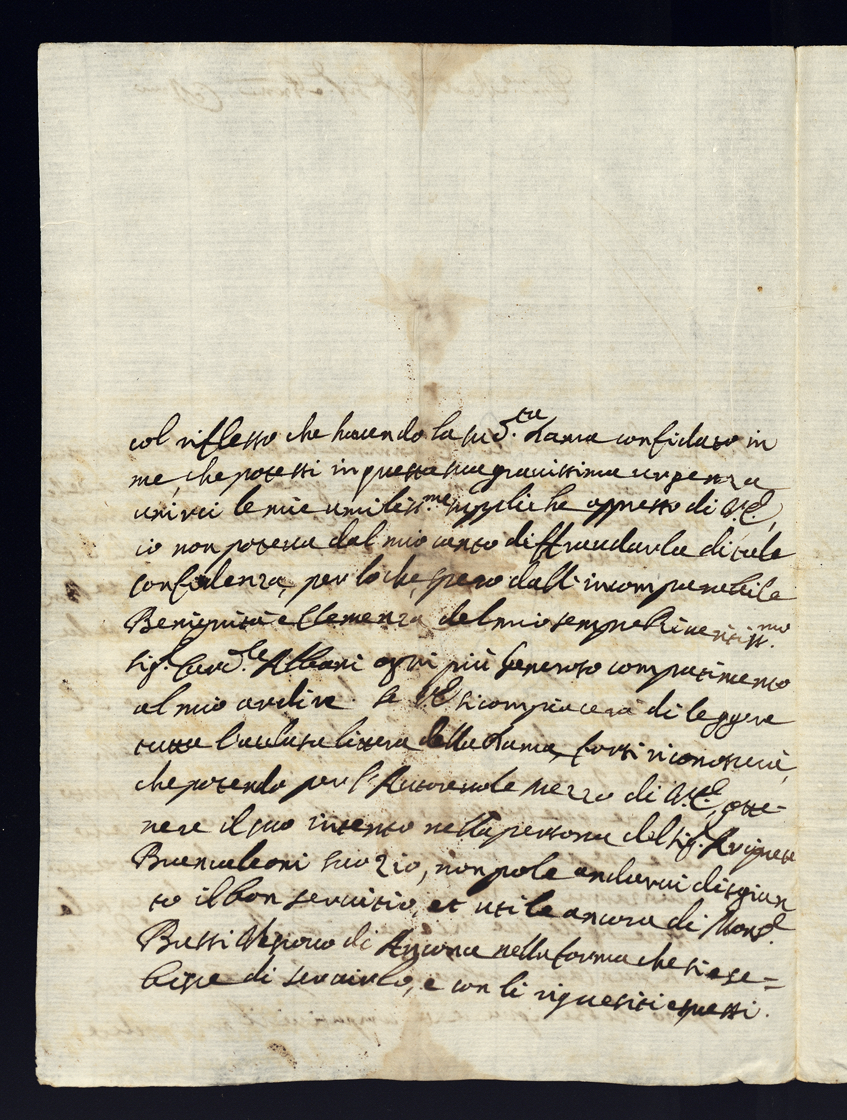 col riflesso che havendo la sud.ta Dama confidato in
me, che potessi in questa sua gravissima urgenza
unirci le mie umiliss.me suppliche appresso di V.E.,
io non potessi dal mio canto diffraudarla di tale
confidenza, per lo che, spero dall'incomparabile
Benignità e Clemenza del mio sempre Riveritiss.mo
Sig.r Card.le Albani ogni più generoso compatimento
al mio ardire. Se V.E. si compiacerà di leggere
tutta l'acclusa lettera della Dama, forsi riconoscerà,
che potendo per l'Autorevole mezzo di V.E., otte-
nere il suo intento nella persona del Sig.r
Buonaleoni suo Zio, non pole andarvi disgiun
to il bon servitio, et utile ancora di Mons.r
Bussi Vescovo di Ancona nella forma che si ese-
bisce di servirlo, e con li riquesiti espressi.